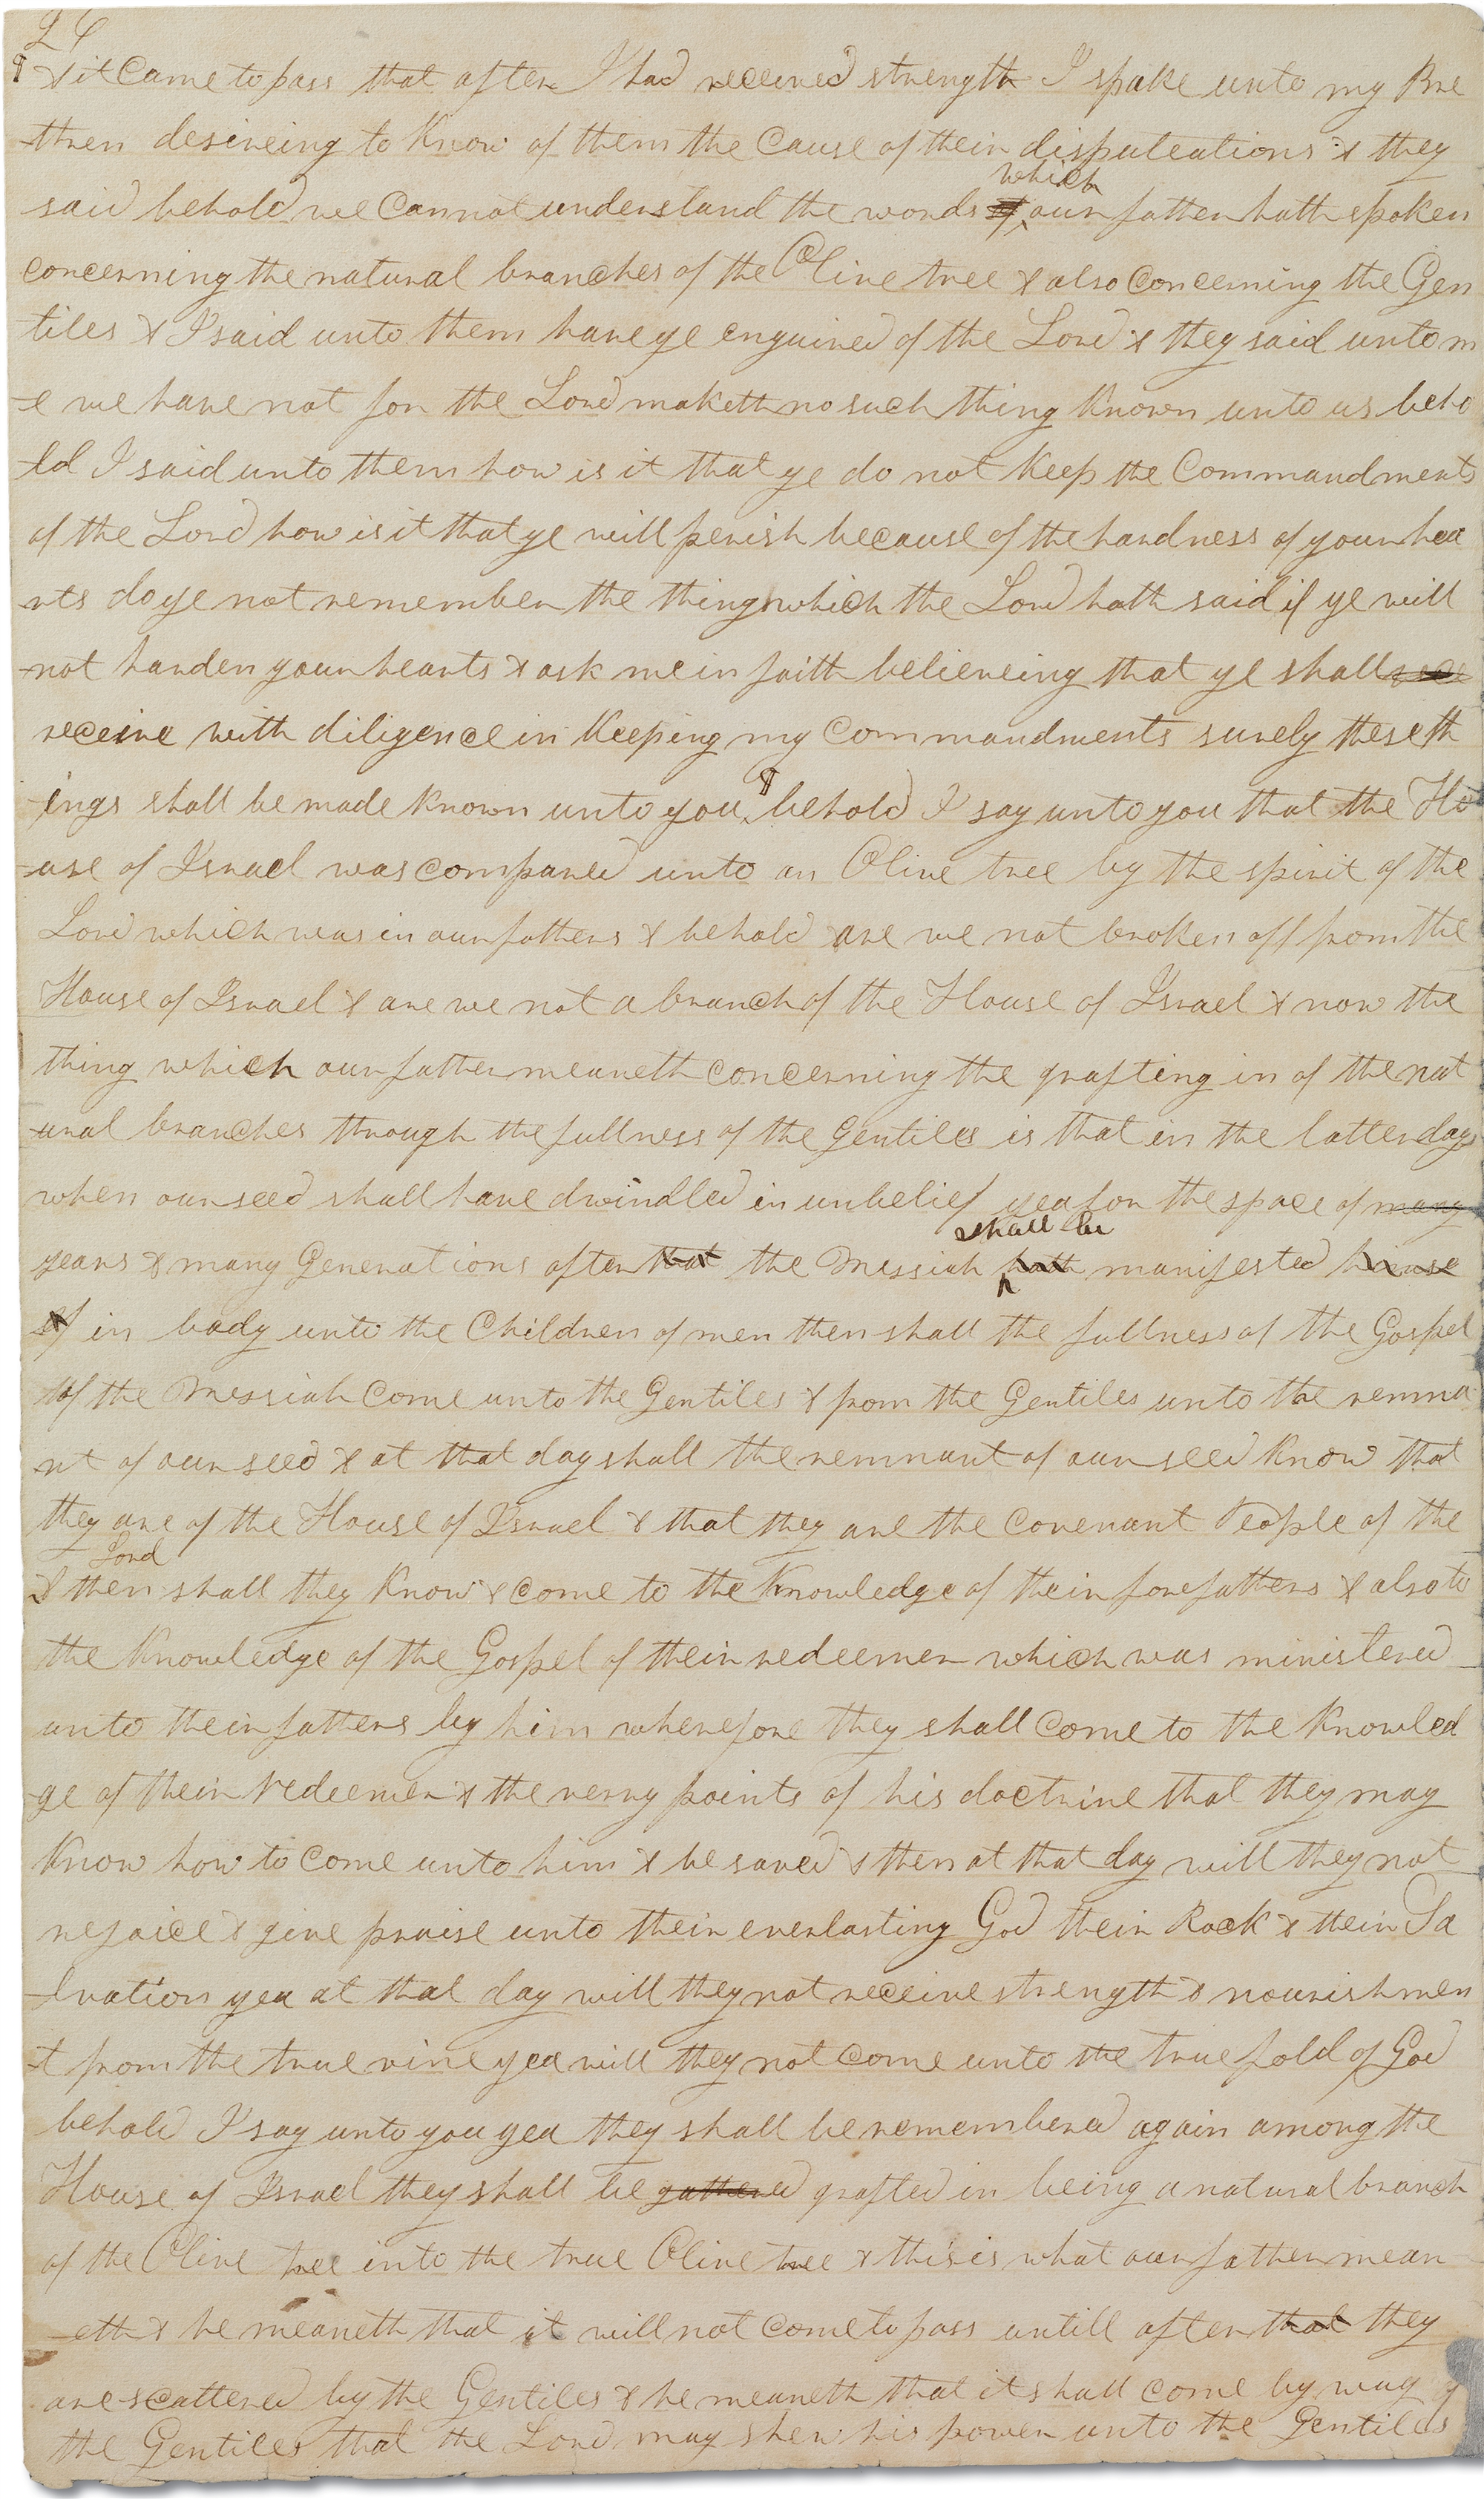 26
¶ & it Came to pass that after I had received strength I spake unto my Bre
-thren desireing to Know of them the Cause of their disputeations & they
which
said behold we Cannot understand the words of ^ our father hath spoken
concerning the natural branches of the Olive tree & also Concerning the Gen
tiles & I said unto them have ye enquired of the Lord & they said unto m
-e we have not for the Lord maketh no such thing Known unto us beho
-ld I said unto them how is it that ye do not Keep the Commandments
of the Lord how is it that ye will perish because of the hardness of your hea
-rts do ye not remember the things which the Lord hath said if ye will
-not harden your hearts & ask me in faith believeing that ye shall
receive with diligence in Keeping my Commandments surely these th
-ings shall be made Known unto you ^ ¶ behold I say unto you that the Ho
-use of Israel was compared unto an Olive tree by the spirit of the
Lord which was in our fathers & behold are we not broken off from the
House of Israel & are we not a branch of the House of Israel & now the
thing which our father meaneth concerning the grafting in of the nat
-ural branches through the fullness of the Gentiles is that in the latter days
when our seed shall have dwindled in unbelief yea for the space of many
shall be
years & many Generations after that the Messiah hath ^ manifested himse
lf in body unto the Children of men then shall the fullness of the Gospel
of the Messiah Come unto the Gentiles & from the Gentiles unto the remna
nt of our seed & at that day shall the remnant of our seed Know that
they are of the House of Israel & that they are the covenant People of the
Lord
& then shall they Know & come to the Knowledge of their forefathers & also to
the Knowledge of the Gospel of their redeemer which was ministered
unto their fathers by him wherefore they shall Come to the Knowled
-ge of their redeemer & the verry points of his doctrine that they may
Know how to Come unto him & be saved & then at that day will they not
rejoice & give praise unto their everlasting God their Rock & their Sa
-lvation yea at that day will they not receive strength & nourishmen
-t from the true vine yea will they not Come unto the true fold of God
behold I say unto you yea they shall be remembered again among the
House of Israel they shall be gathered grafted in being a natural branch
of the Olive tree into the true Olive tree & this is what our father mean
-eth & he meaneth that it will not come to pass untill after that they
are scattered by the Gentiles & he meaneth that it shall come by way of
the Gentiles that the Lord may shew his power unto the Gentiles